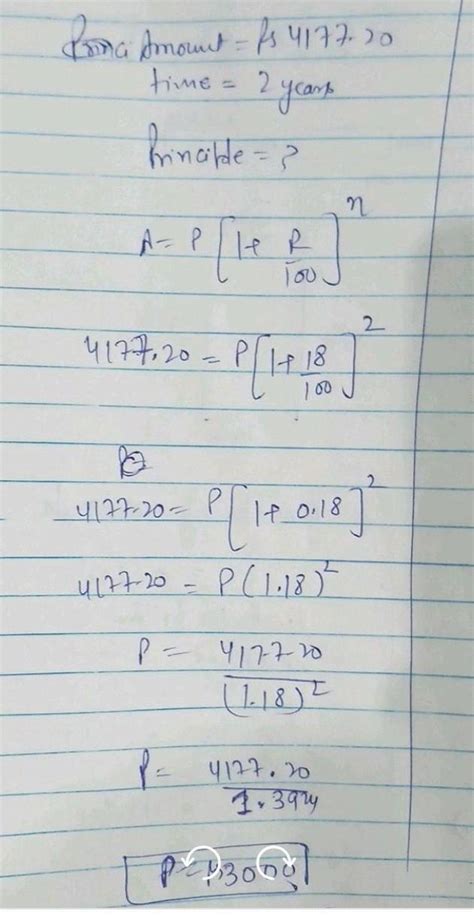 Amount = Rs 4177.20
time = 2 years
Principle = ?
A = P [1+ R/100]^n
4177.20 = P [1+ 18/100]^2
4177.20 = P [1+ 0.18]^2
4177.20 = P (1.18)^2
P = 4177.20/(1.18)^2
P = 4177.20/1.3924
P = 3000